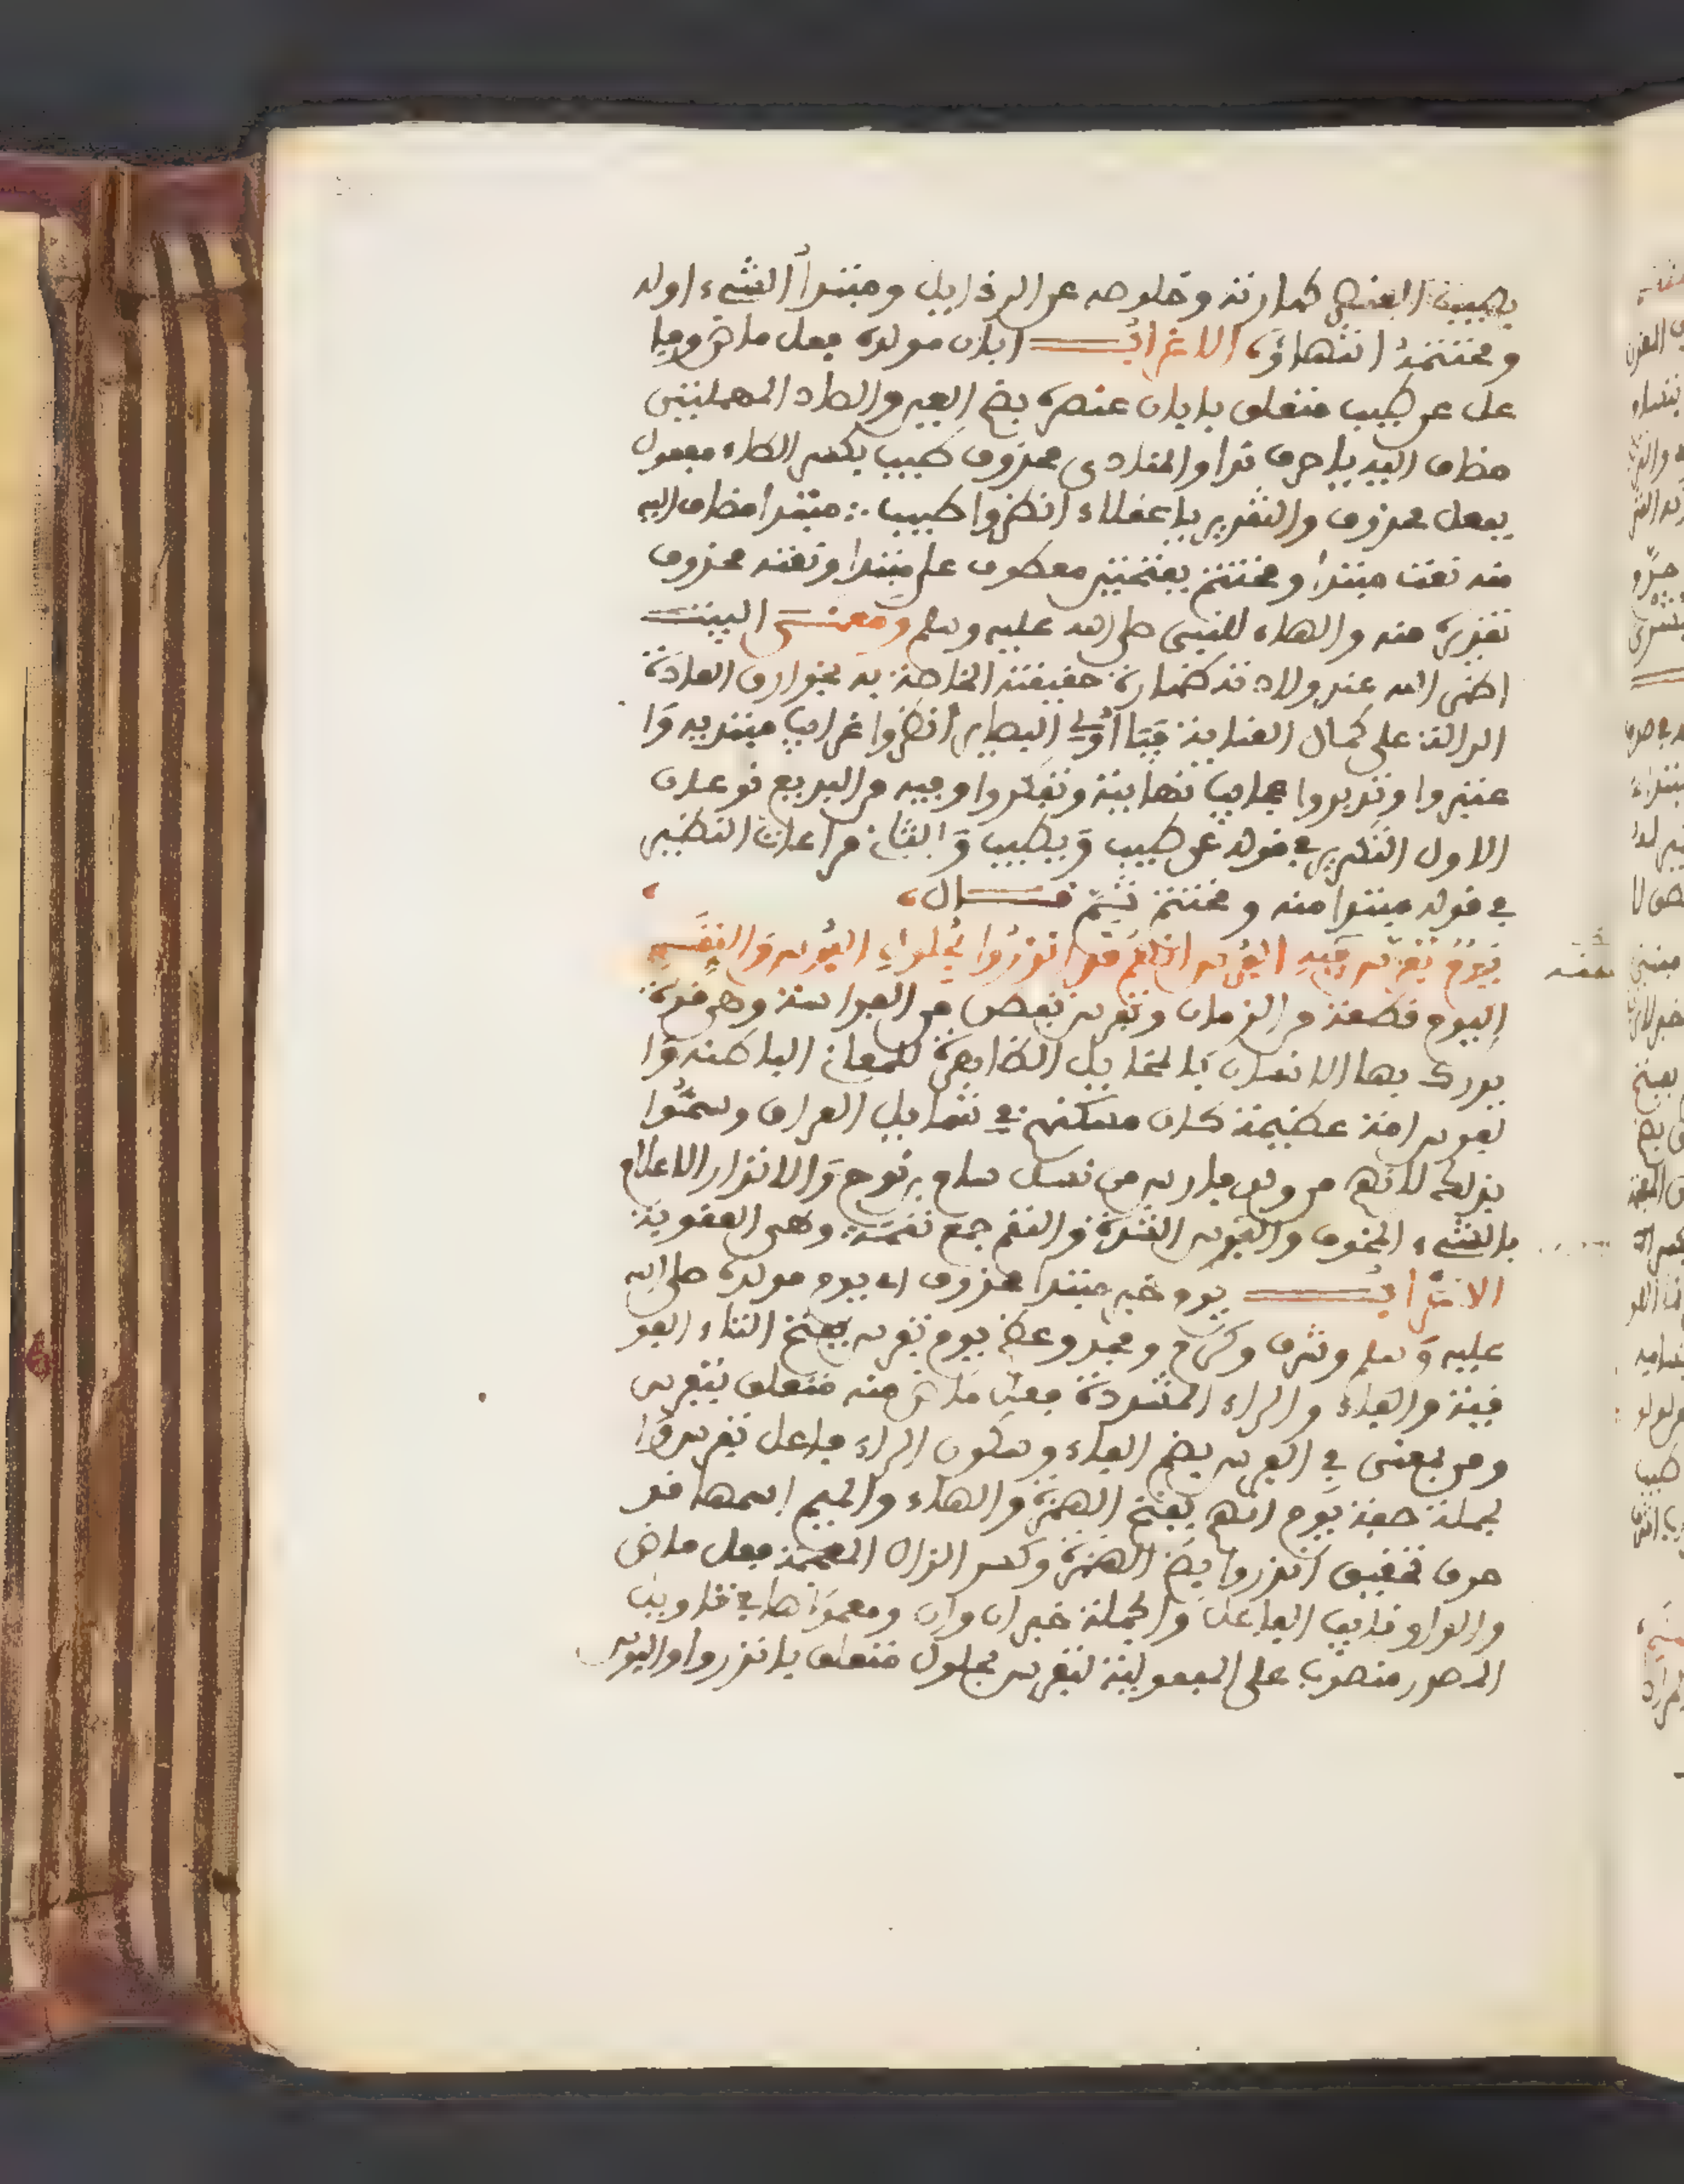 بطيب العنصر طهارته وخلوصه عن الرذايل ومبتدأ الشيء اوله
ومختتمه انتهاؤه الاعراب ابان مولده فعل ماض وفا
عل عن طيب متعلق بابان عنصره بضم العين والصاد المهملتين
مضاف اليه يا حرف ندا والمنادى محذوف طيب بكسر الطاء مفعول
بفعل محذوف والتقدير يا عقلاء انظروا طيب مبتدا مضاف اليه
منه نعت مبتدا ومختتم بفتحتين معطوف على مبتدا ونعته محذوف
تقديره منه والهاء للنبي صلى الله عليه وسلم ومعنى البيت
اظهر الله عند ولادته طهارة حقيقته الخاصة به بخوارق العادة
الدالة على كمال العناية فيا اولي البصاير انظروا غرايب مبتديه وا
عتبروا وتدبروا عجايب نهايته وتفكروا وفيه من البديع نوعان
الاول التكرير في قوله عن طيب وبطيب والثاني مراعات النظير
في قوله مبتدا منه ومختتم ثم قال
يوم تفرس فيه الفرس انهم قد انذروا بحلول البؤس والنقم
اليوم قطعة من الزمان وتفرس تفحص من الفراسة وهي قوة
يدرك بها الانسان بالمخايل الظاهرة للمعاني الباطنة وا
لفرس امة عظيمة كان مسكنهم في شمايل العراق وسموا
بذلك لانهم من ولد فارس من نسل سام بن نوح والانذار الاعلام
بالشيء المخوف والبؤس الشدة والنقم جمع نقمة وهي العقوبة
الاعراب يوم خبر مبتدا محذوف اي يوم مولده صلى الله
عليه وسلم وشرف وكرم ومجد وعظم يوم تفرس بفتح التاء الفو
قية والفاء والراء المشددة فعل ماض منه متعلق بتفرس
ومن بمعنى في الفرس بضم الفاء وسكون الراء فاعل تفرس وا
لجملة صفة يوم انهم بفتح الهمزة والهاء والميم اسمها قد
حرف تحقيق انذروا بضم الهمزة وكسر الذال المعجمة فعل ماض
والواو نايب الفاعل والجملة خبر ان وان ومعمولاها في تاويل
المصدر منصوب على المفعولية لتفرس بحلول متعلق بانذروا والبؤس